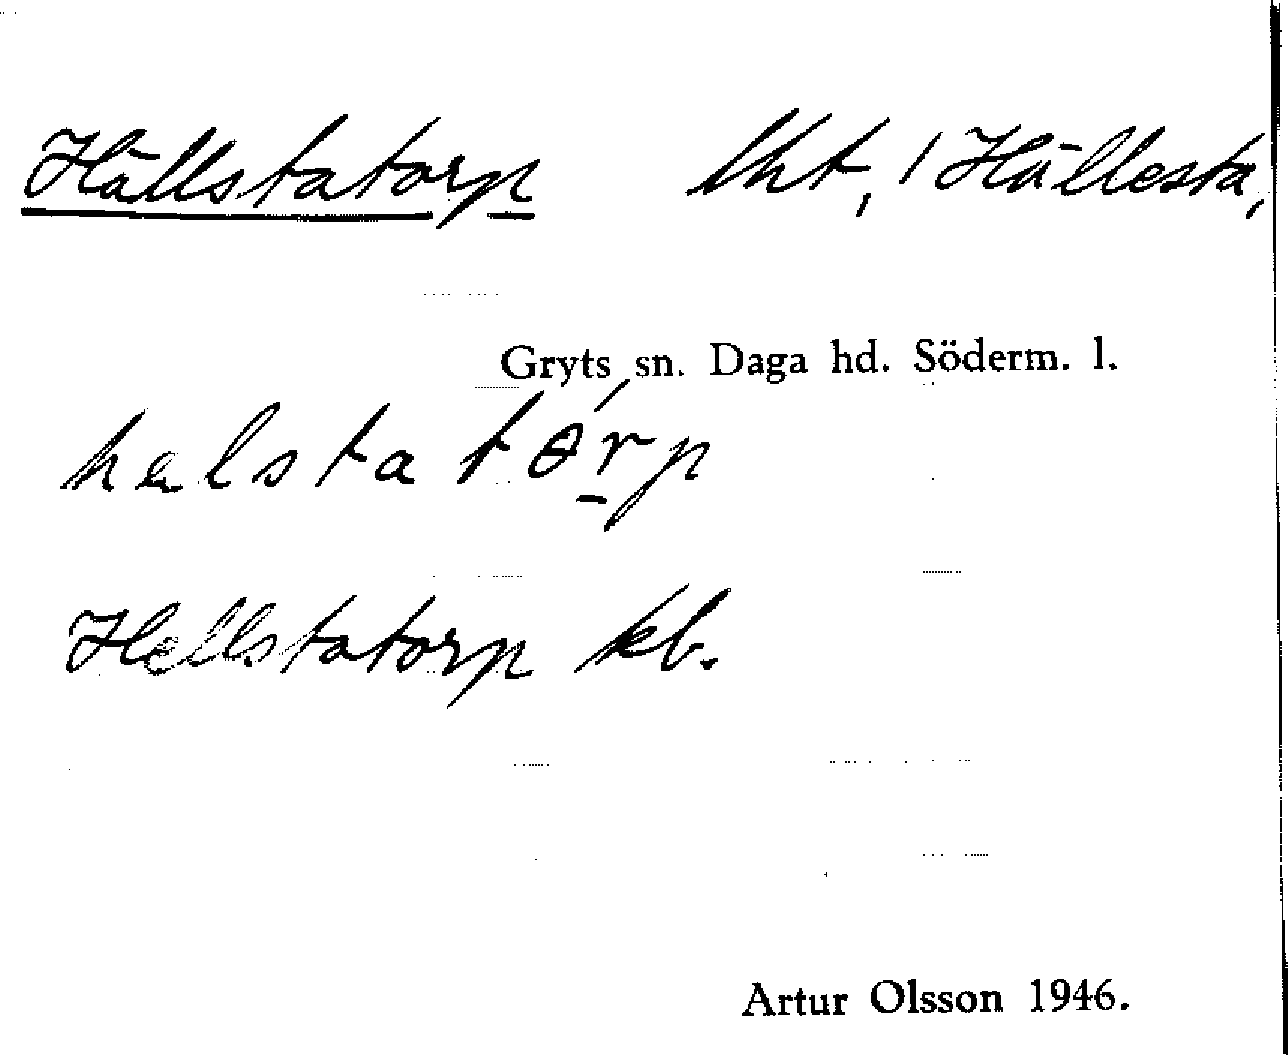 Hällstatorp lht, 1 Hällesta,
Gryts sn. Daga hd. Söderm. l.
halstatɵ́rp
Hellstatorp kb.
Artur Olsson 1946.